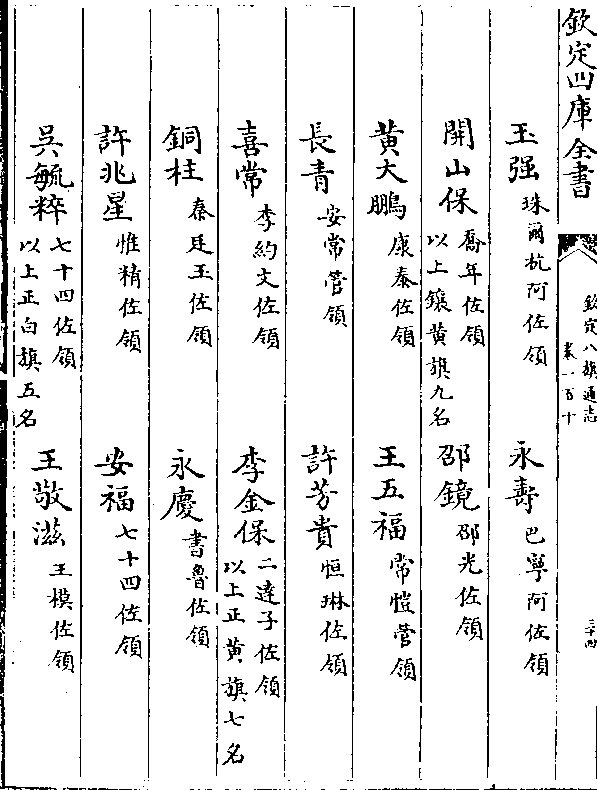 欽定四庫全書
欽定八旗通志
卷一百十
三十四
玉强 珠爾杭阿佐領 永壽 巴寧阿佐領
開山保 喬年佐領
以上鑲黄旗九名 邵鏡 邵光佐領
黄大鵬 康泰佐領 王五福 常愷管領
長青 安常管領 許芳貴 恒琳佐領
喜常 李約文佐領 李金保 二逹子佐領
以上正黄旗七名
銅柱 秦廷玉佐領 永慶 書魯佐領
許兆星 惟精佐領 安福 七十四佐領
吳毓粹 七十四佐領
以上正白旗五名 王敬滋 王模佐領